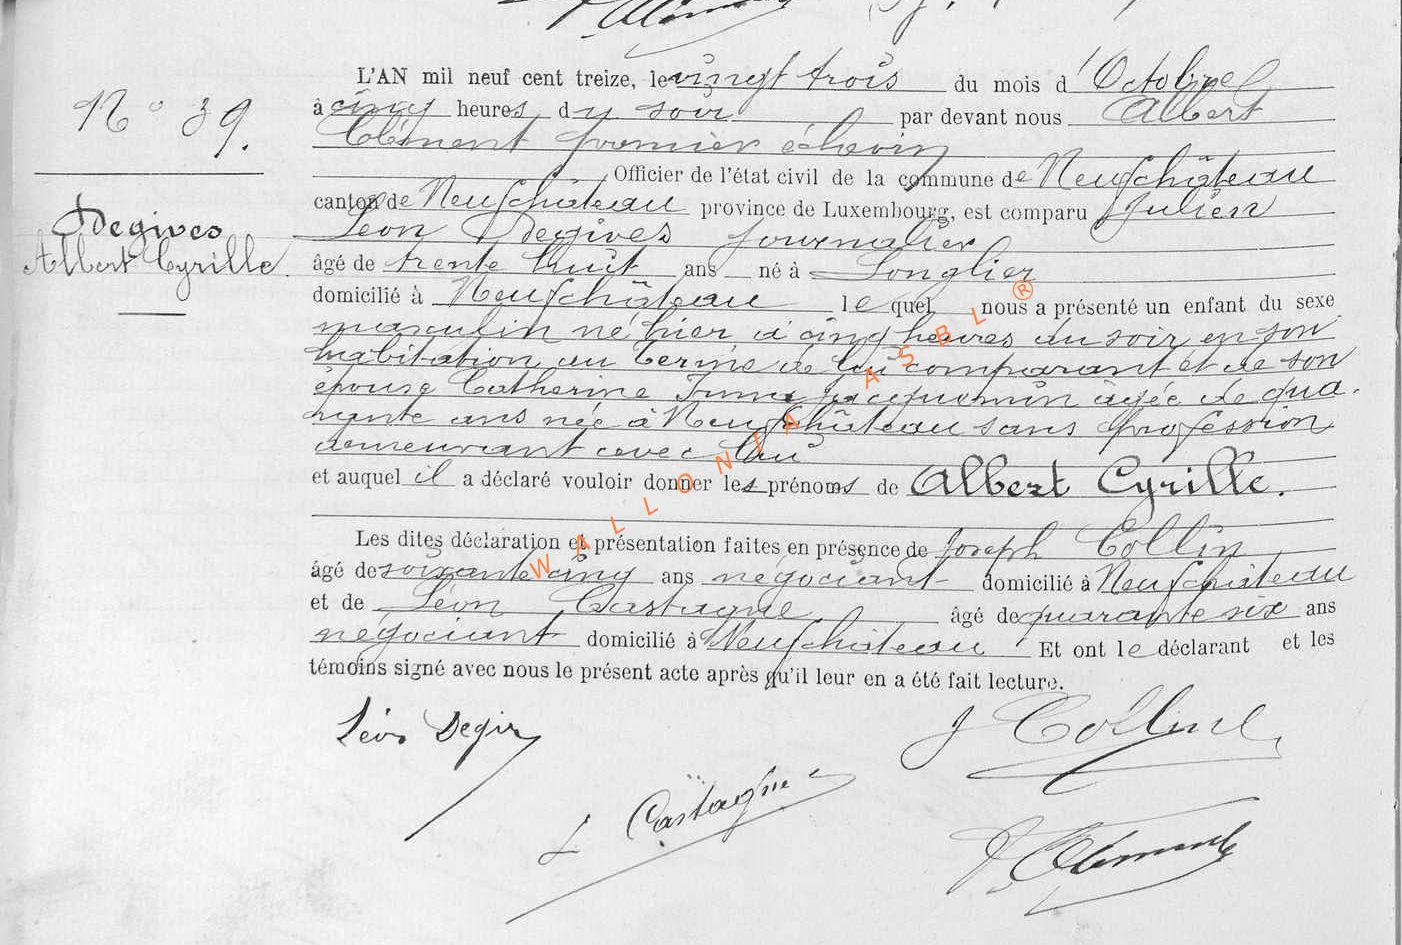 L'AN mil neuf cent treize, le vingt trois du mois d'Octobre
N° 39.
à cinq heures du soir par devant nous Albert
Clément premier échevin
Officier de l'état civil de la commune de Neufchâteau
canton de Neufchâteau province de Luxembourg, est comparu Julien
Degives
Albert Cyrille.
Léon Degives journalier
âgé de trente huit ans né à Longlier
domicilié à Neufchâteau lequel nous a présenté un enfant du sexe
masculin né hier à cinq heures du soir en son
habitation au Terme de lui comparant et de son
épouse Catherine Jacquemin âgée de qua-
rante ans née à Neufchâteau sans profession
demeurant avec lui
et auquel il a déclaré vouloir donner les prénoms de Albert Cyrille.
Les dites déclaration et présentation faites en présence de Joseph Collin
âgé de soixante cinq ans négociant domicilié à Neufchâteau
et de Léon Castagne âgé de quarante six ans
négociant domicilié à Neufchâteau Et ont le déclarant et les
témoins signé avec nous le présent acte après qu'il leur en a été fait lecture.
Léon Degives
J Collin
L Castagne
Clément
WALLONIA ASBL ®